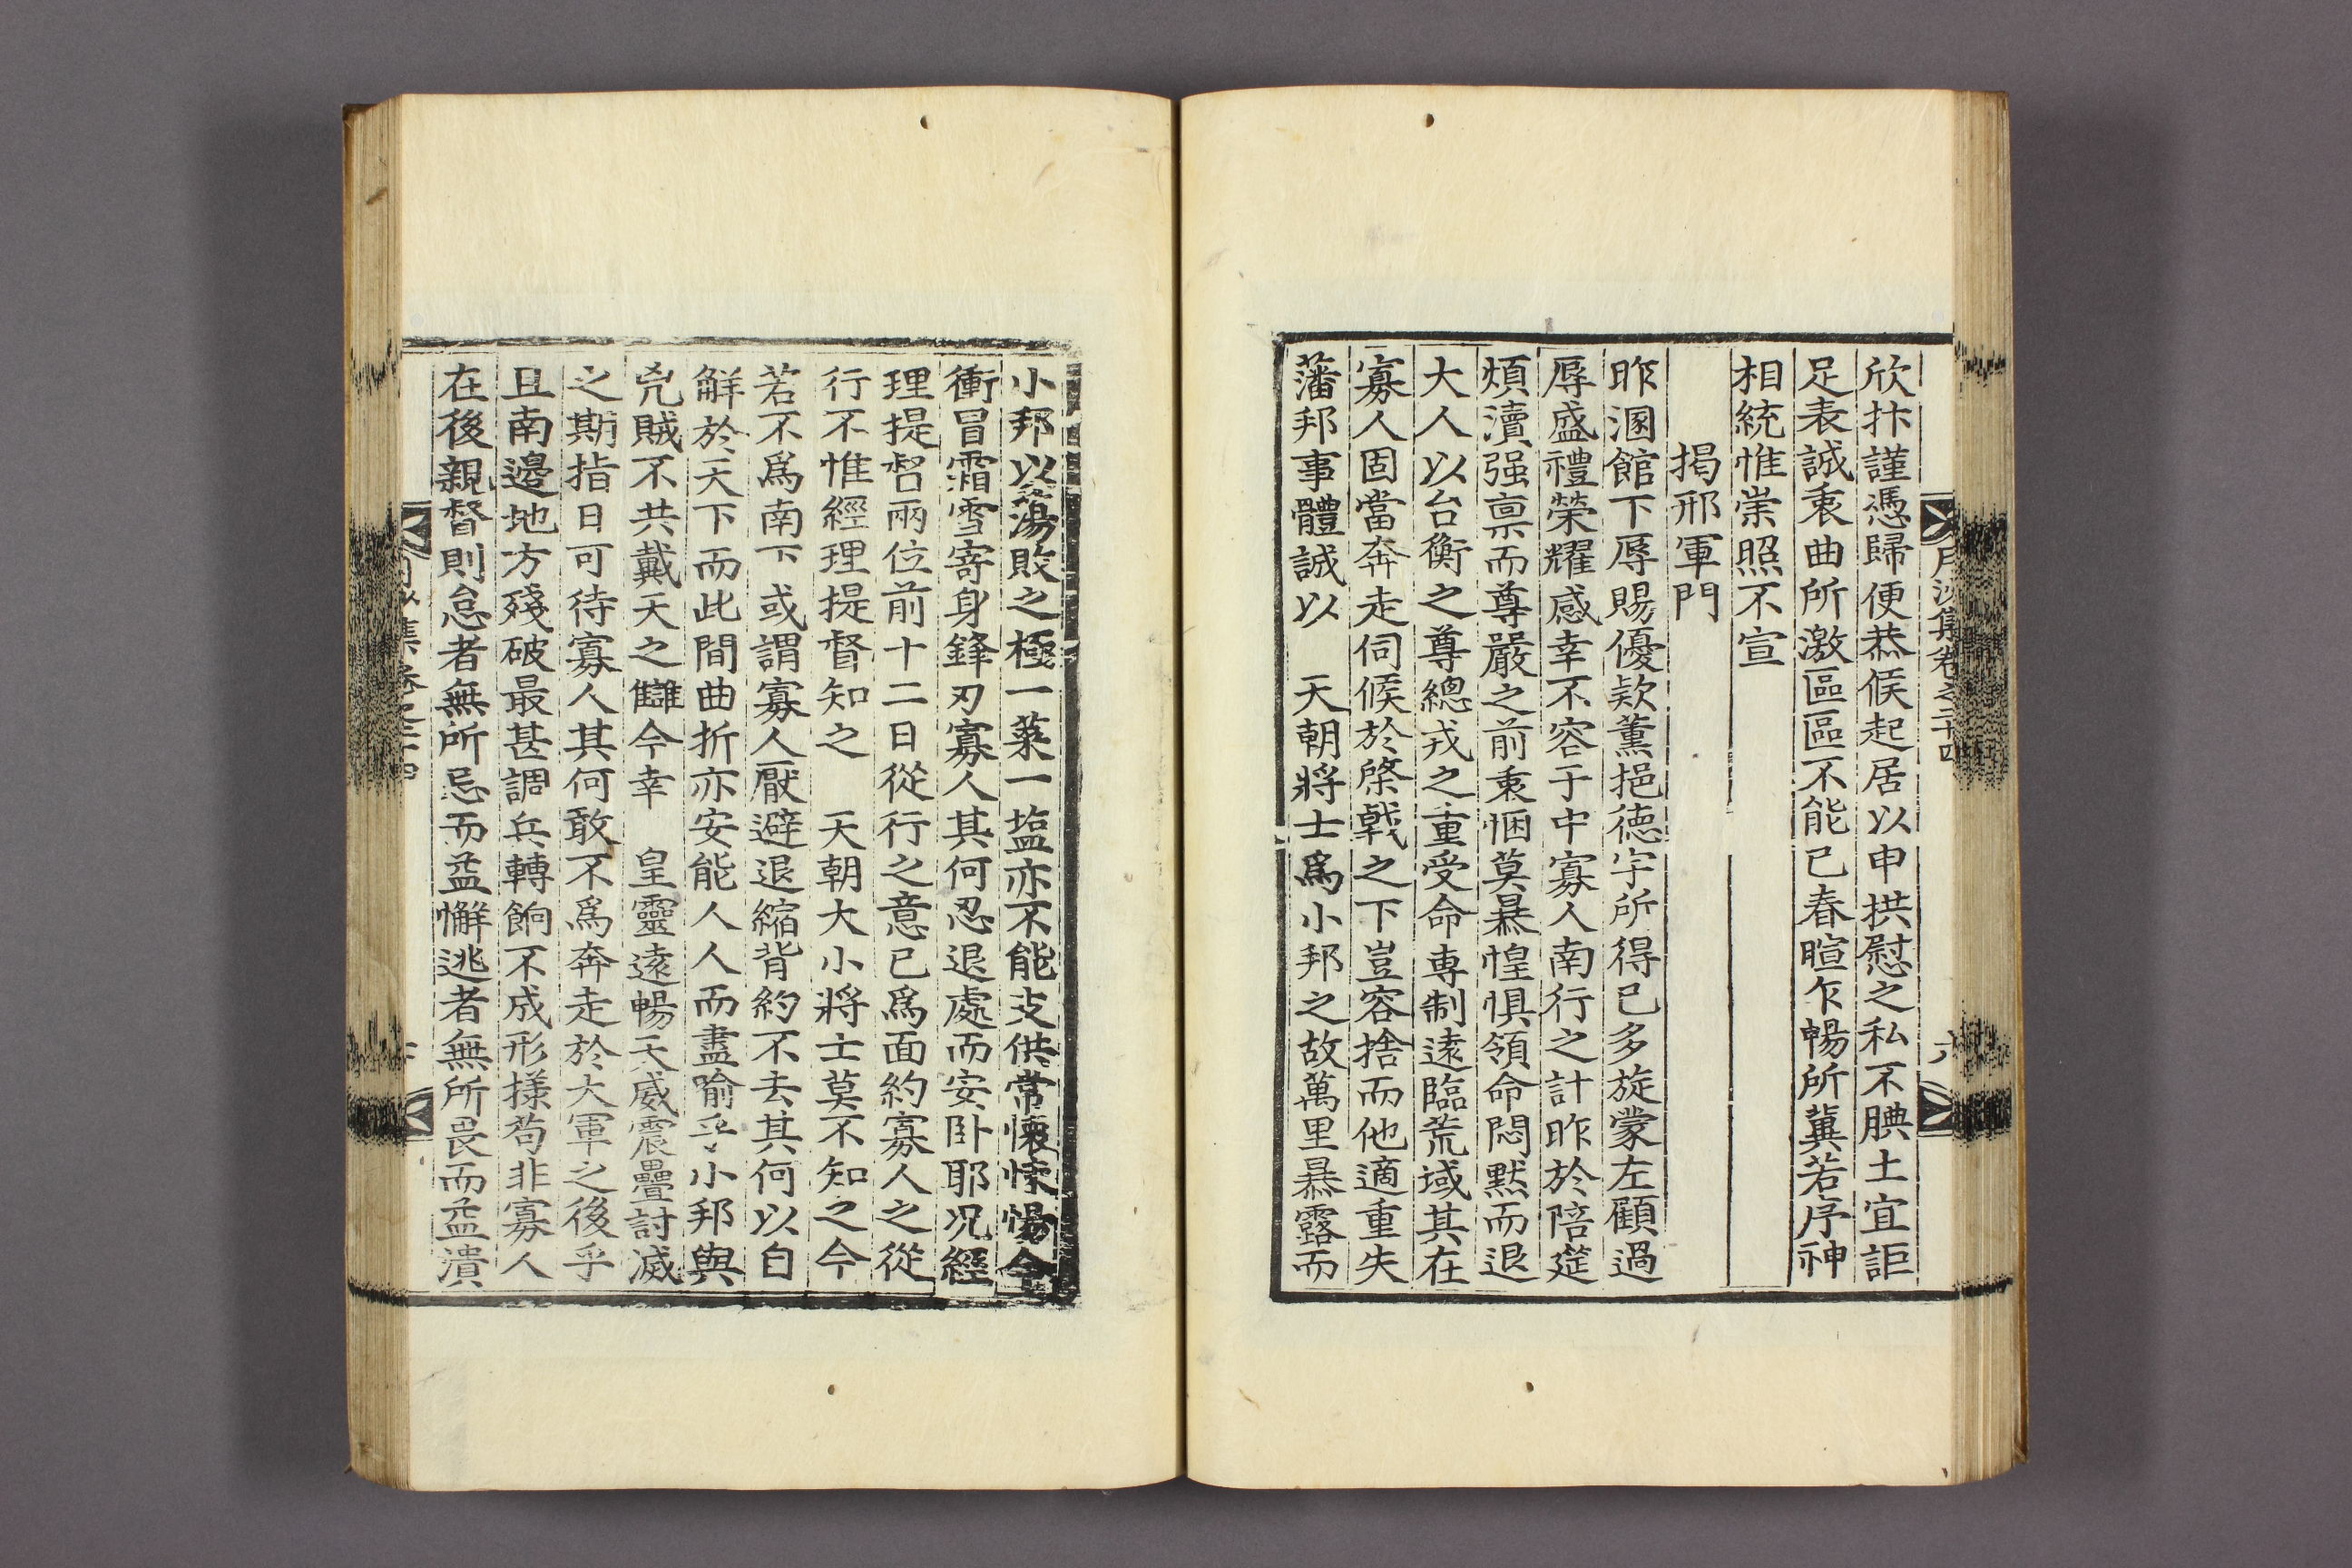 欣抃謹憑歸便恭候起居以申拱慰之私不腆土宜詎
足表誠衷曲所激區區不能已春暄乍暢所冀若序神
相統惟崇照不宣
揭邢軍門
昨溷館下辱賜優欵薰挹德宇所得已多旋蒙左顧過
辱盛禮榮耀感幸不容于中寡人南行之計昨於陪筵
煩瀆强禀而尊嚴之前衷悃莫暴惶惧領命悶默而退
大人以台衡之尊總戎之重受命専制遠臨荒域其在
寡人固當奔走伺候於棨戟之下豈容捨而他適重失
藩邦事體誠以　天朝將士爲小邦之故萬里暴露而
月沙集卷之二十四
六
小邦以蕩敗之極一菜一塩亦不能支供常懷悚惕今
衝冒霜雪寄身鋒刃寡人其何忍退處而安卧耶况經
理提督兩位前十二日從行之意已爲面約寡人之從
行不惟經理提督知之　天朝大小將士莫不知之今
若不爲南下或謂寡人厭避退縮背約不去其何以自
觧於天下而此間曲折亦安能人人而盡喩乎小邦與
兇賊不共戴天之讎今幸　皇靈遠暢天威震疊討滅
之期指日可待寡人其何敢不爲奔走於大軍之後乎
且南邊地方殘破最甚調兵轉餉不成形樣苟非寡人
在後親督則怠者無所忌而益懈逃者無所畏而益潰